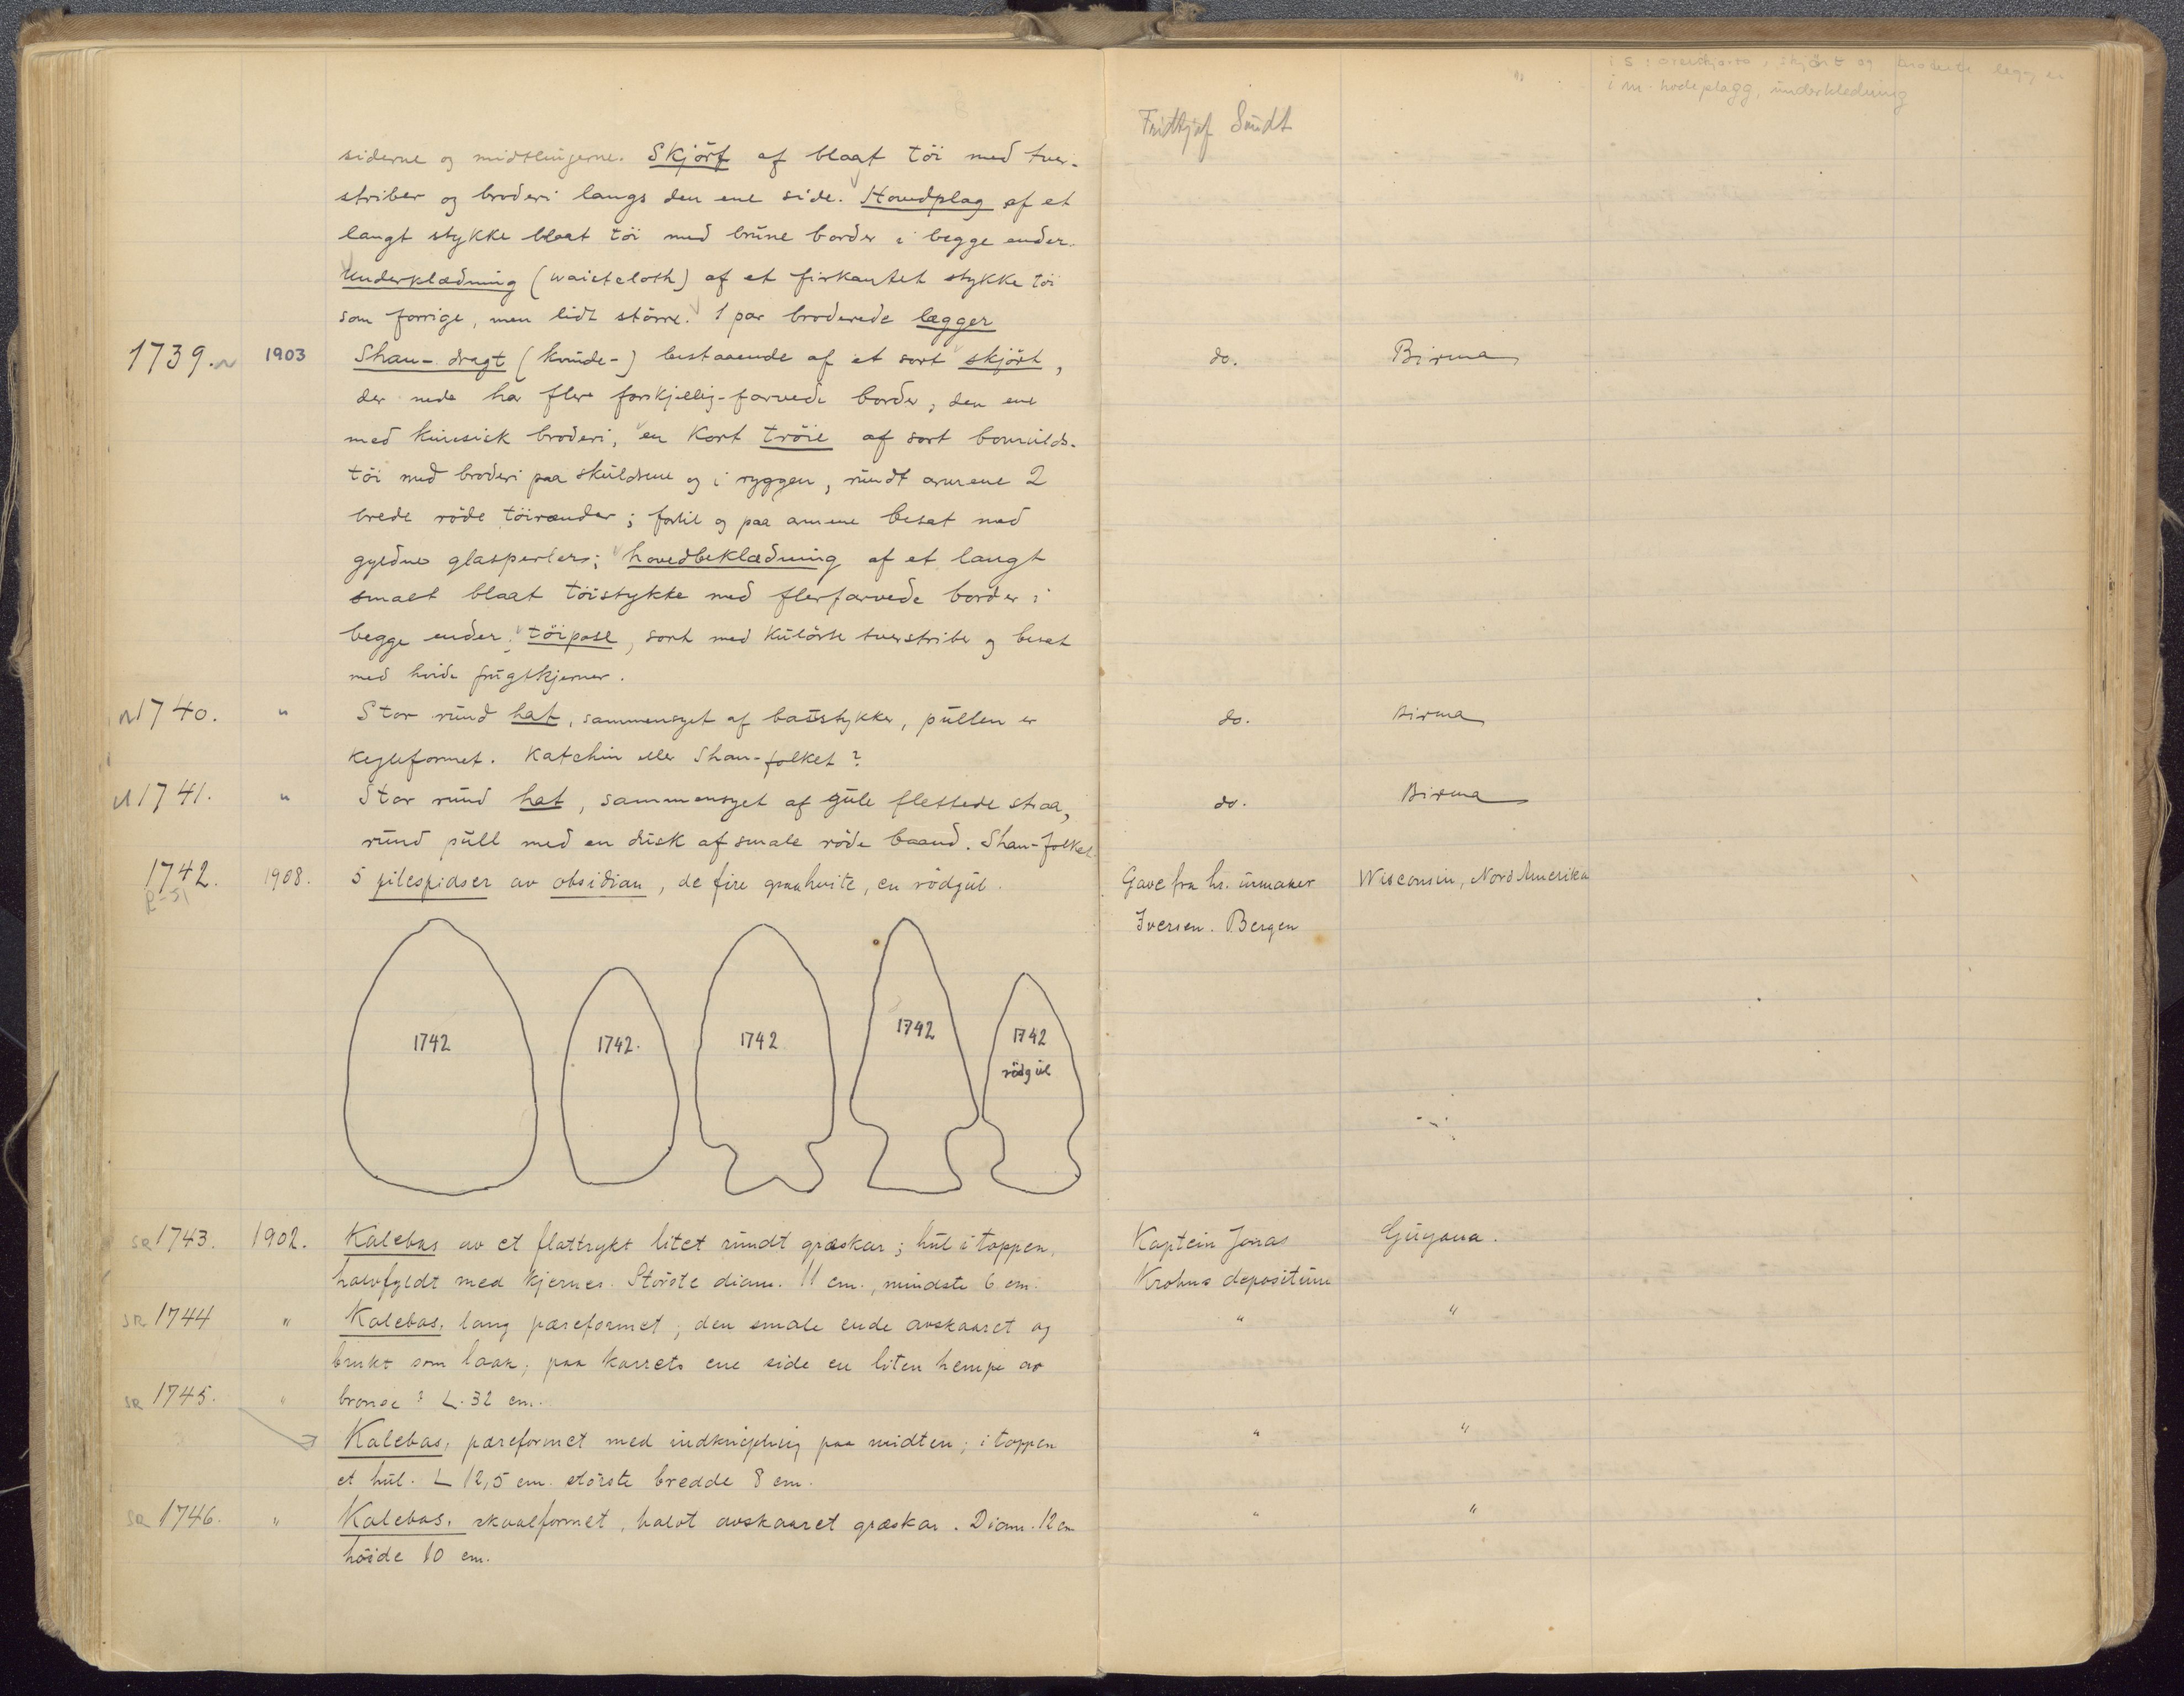 i m. hodeplagg, underkledning
Fridtjof Sundt
siderne og midtlingerne. Skjört af blaat töi med tver-
striber og broderi langs den ene side. Hovedplag af et
langt stykke blaat töi med brune border i begge ender.
Underklædning (waistcloth) af et firkantet stykke töi
som forrige, men lidt större. 1 par broderede lægger
1739. 1903 Shan-dragt (kvinde-) bestaaende af et sort skjört, do. Birma
der nede har flere forskjellig-farvede border, den ene
med kinesisk broderi, en kort tröie af sort bomulds-
töi med broderi paa skuldrene og i ryggen, rundt armene 2
brede röde töirander; fortil og paa armene besat med
gyldne glasperler; hovedbeklædning af et langt
smalt blaat töistykke med flerfarvede border i
begge ender. töipose, sort med kulörte tverstriber og besat
med hvide frugtkjerner.
1740. " Stor rund hat, sammensyet af baststykker, pullen er do. Birma
kegleformet. Katchin eller Shan-folket?
1741. " Stor rund hat, sammensyet af gule flettede straa, do. Birma
rund pull med en dusk af smale röde baand. Shan-folket.
1742. 1908. 5 pilespidser av obsidian, de fire graahvite, en rödgul. Gave fra hr. urmaker Wisconsin, Nord Amerika
Iversen. Bergen
1742 1742. 1742 1742 1742
rödgul
SR 1743. 1902. Kalebas av et flattrykt litet rundt græskar; hul i toppen, Kaptein Jonas Guyana.
halvfyldt med kjerner. Störste diam. 11 cm., mindste 6 cm. Krohns depositum
SR 1744 " Kalebas, lang pæreformet, den smale ende avskaaret og " "
brukt som laak; paa karrets ene side en liten hempe av
SR 1745. " bronse? L. 32 cm.
Kalebas, pæreformet med indknipning paa midten; i toppen " "
et hul. L 12,5 cm. störste bredde 8 cm.
SR 1746. " Kalebas, skaalformet, halvt avskaaret græskar. Diam. 12 cm " "
höide 10 cm.